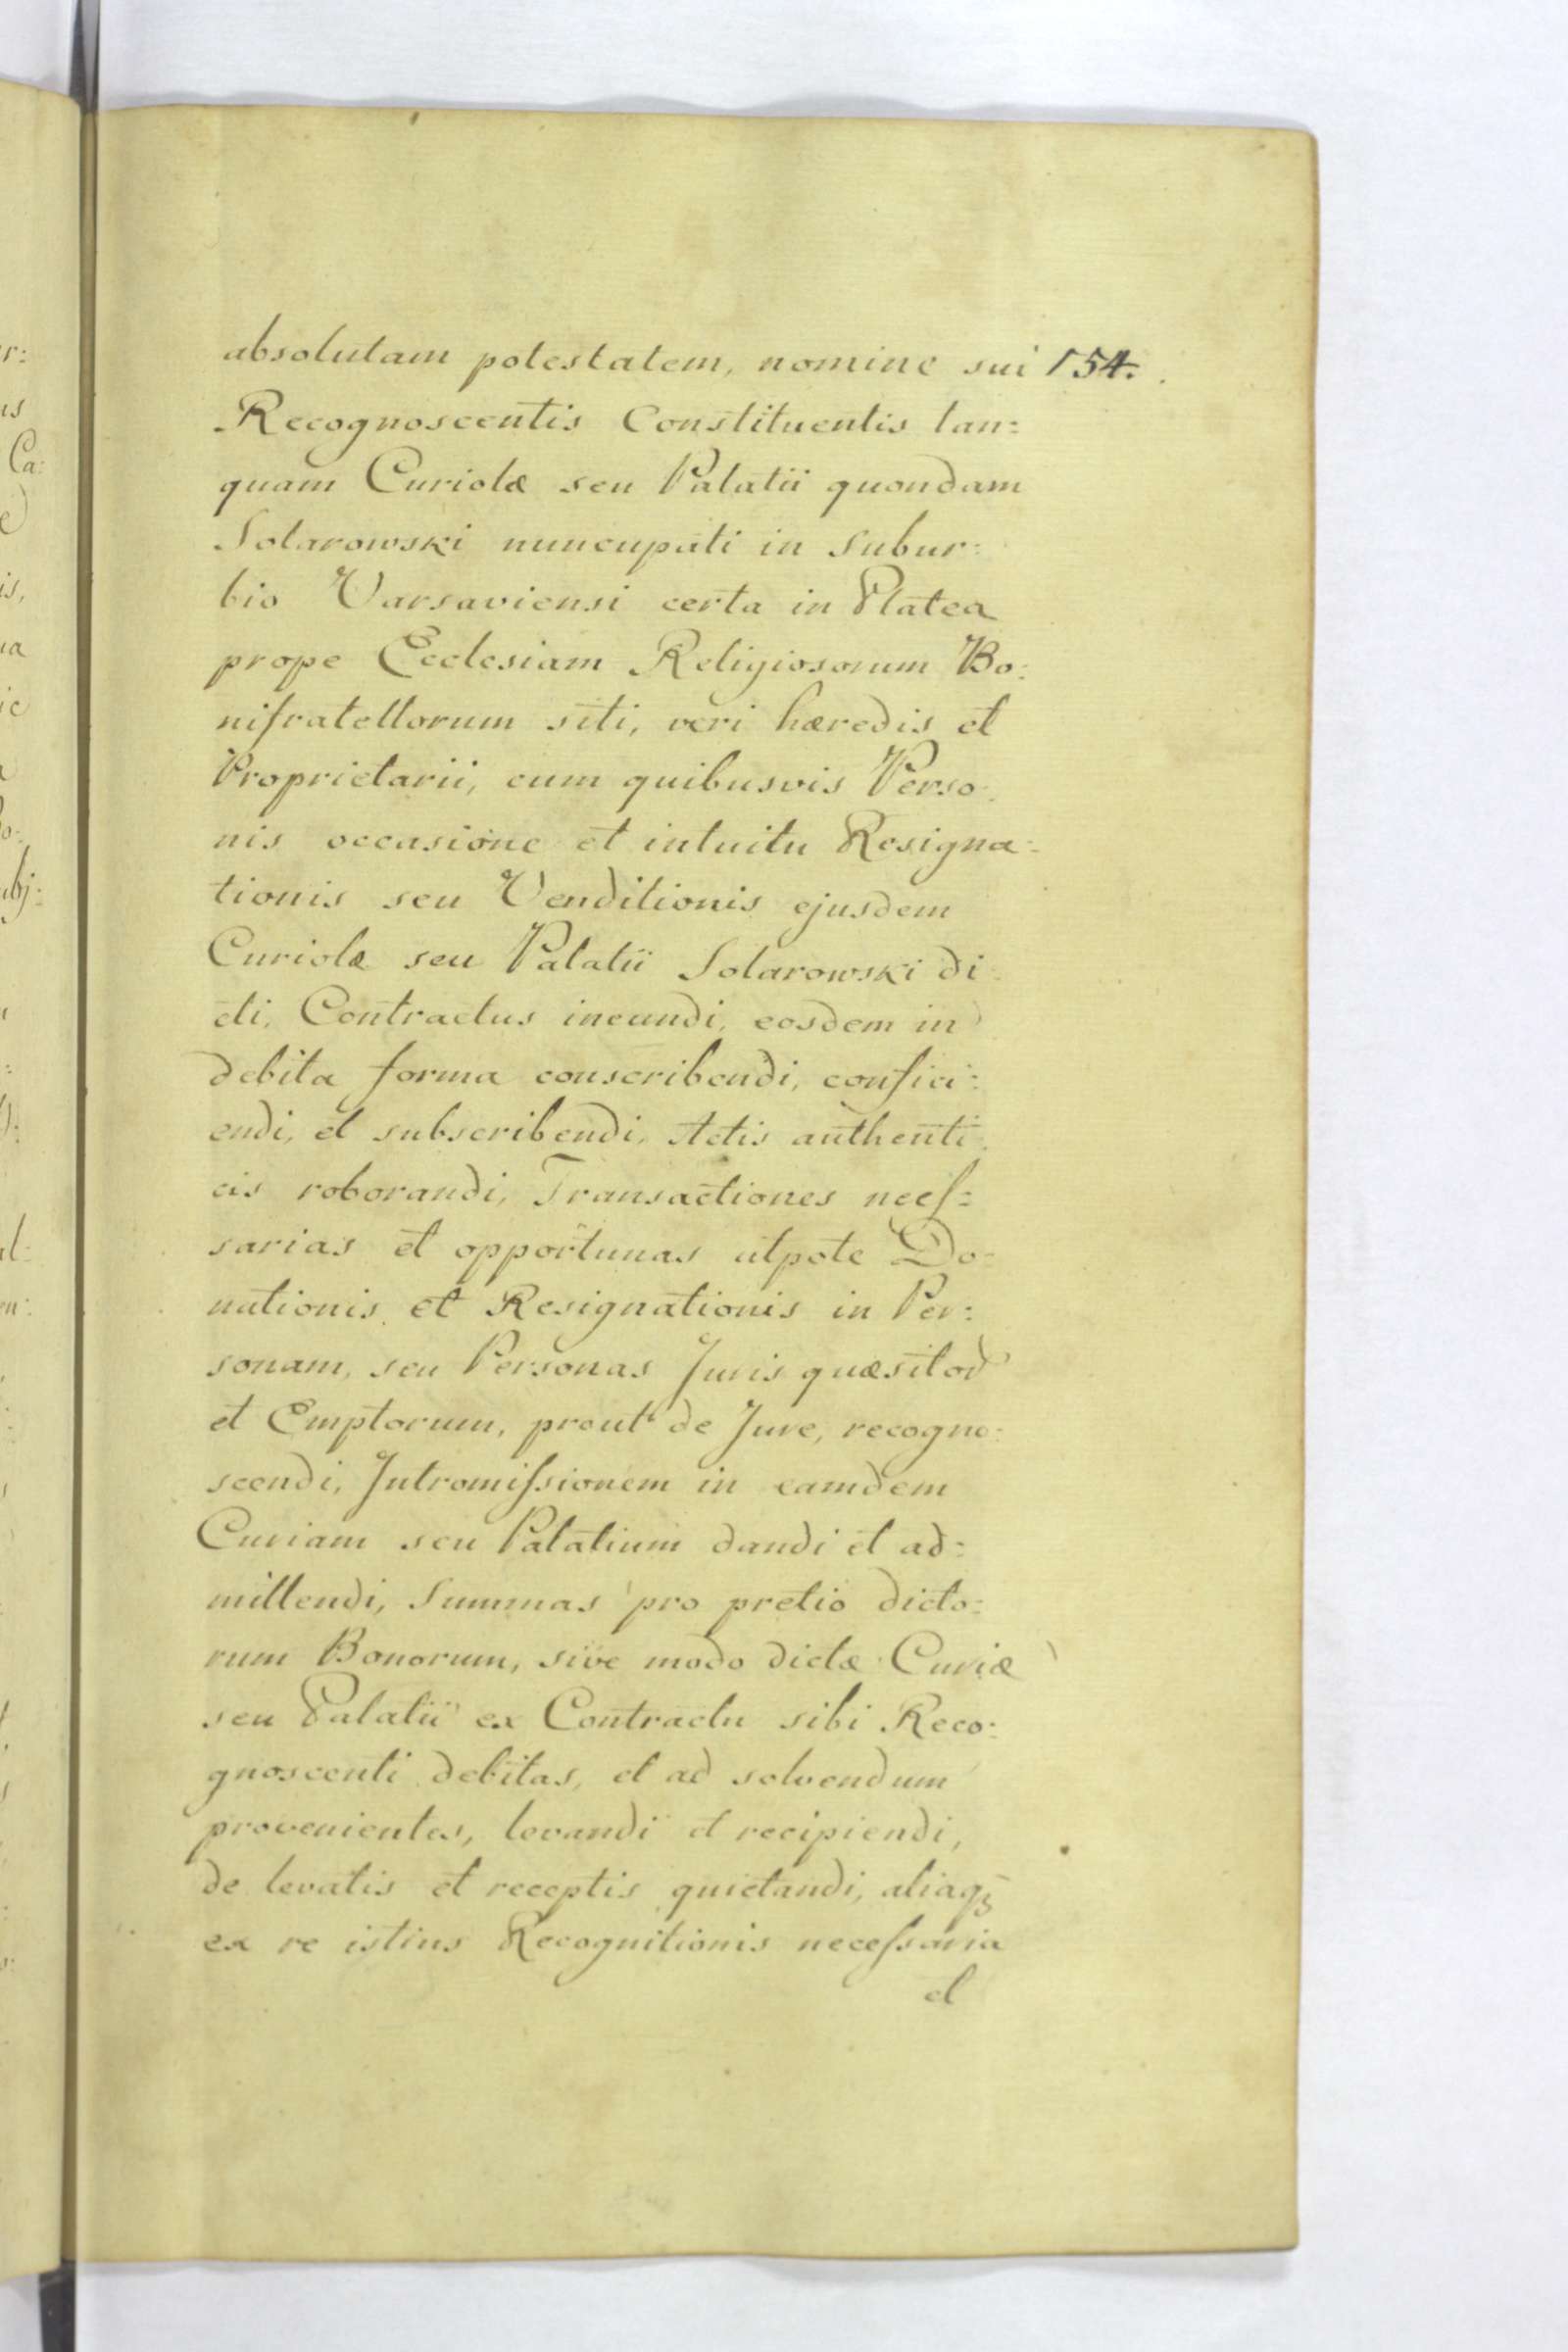 absolutam potestatem, nomine sui 154.
Recognoscentis Constituentis tan=
quam Curiolæ seu Palatii quondam
Solarowski nuncupati in Subur=
bio Varsaviensi certa in Platea
prope Ecclesiam Religiosorum Bo=
nifratellorum siti, veri hæredis et
Proprietarii, cum quibusvis Perso=
nis occasione et intuitu Resigna=
tionis seu Venditionis ejusdem
Curiolæ seu Palatii Solarowski di=
cti, Contractus ineundi, eosdem in
debita forma conscribendi, confici=
endi, et subscribendi, Actis authenti=
cis roborandi, Transactiones necſ=
sarias et opportunas utpote Do=
nationis et Resignationis in Per=
sonam, seu Personas Juris quæsitor
et Emptorum, prout de Jure, recogno=
scendi, Intromiſsionem in eamdem
Curiam seu Palatium dandi et ad=
mittendi, Summas pro pretio dicto=
rum Bonorum, sive modo dictæ Curiæ
seu Palatii ex Contractu sibi Reco=
gnoscenti debitas, et ad solvendum
provenientes, levandi et recipiendi,
de levatis et receptis quietandi, aliaqꝫ
ex re istius Recognitionis neceſsaria
et